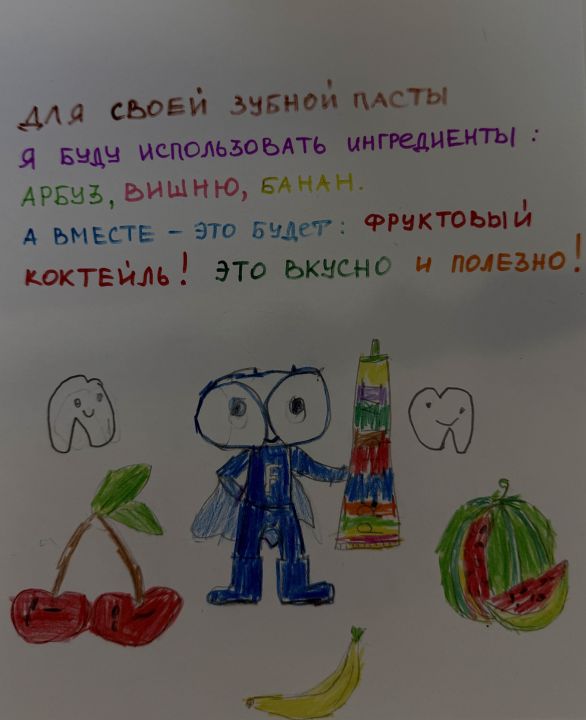 ДЛЯ СВОЕЙ ЗУБНОЙ ПАСТЫ
Я БУДУ ИСПОЛЬЗОВАТЬ ИНГРЕДИЕНТЫ :
АРБУЗ, ВИШНЮ, БАНАН.
А ВМЕСТЕ – ЭТО БУДЕТ : ФРУКТОВЫЙ
КОКТЕЙЛЬ! ЭТО ВКУСНО И ПОЛЕЗНО!
F